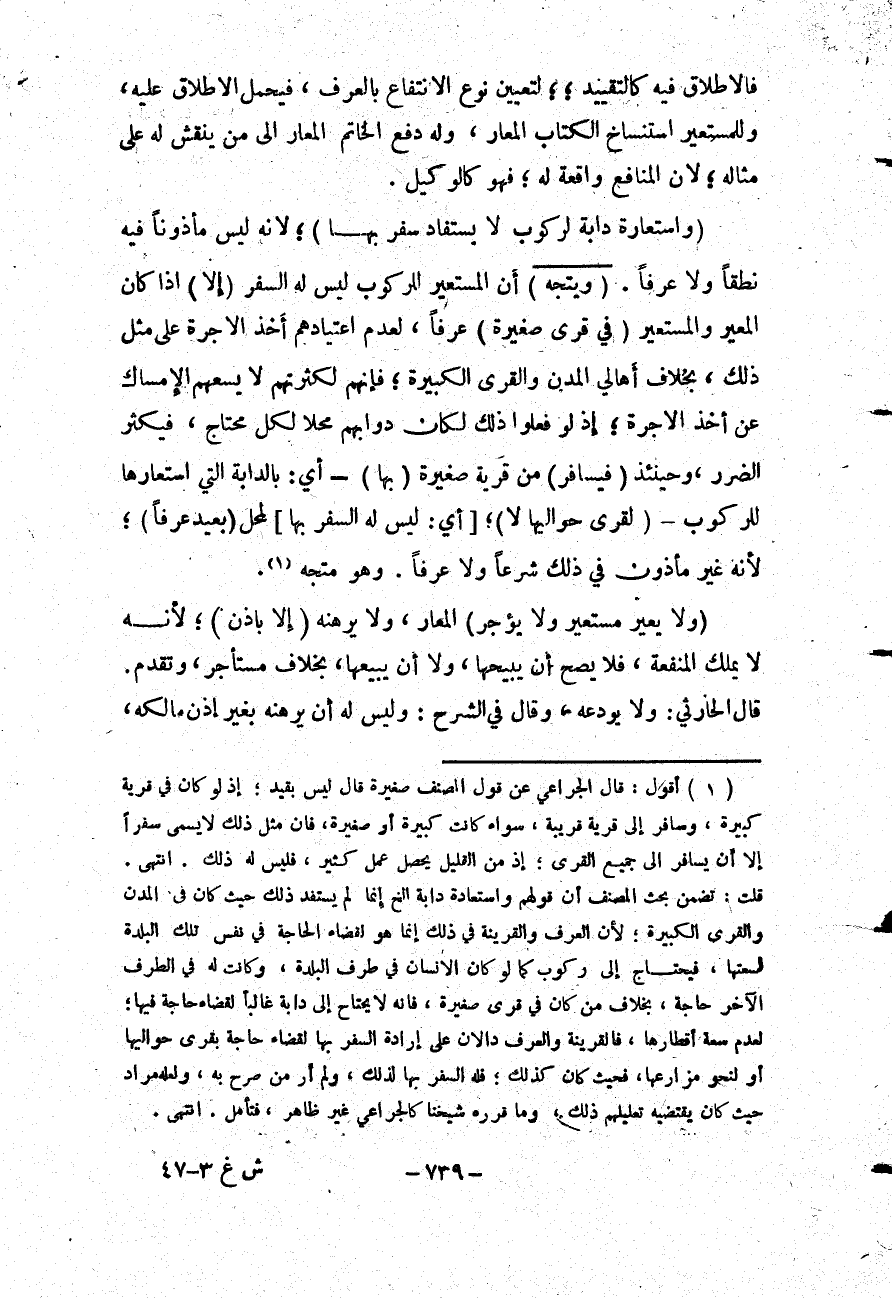 فالاطلاق فيه كالتقييد ؛ ؛ لتعيين نوع الانتفاع بالعرف ، فيحمل الاطلاق عليه،
وللمستعير استنساخ الكتاب المعار ، وله دفع الخاتم المعار الى من ينقش له على
مثاله ؛ لان المنافع واقعة له ؛ فهو كالوكيل .
(واستعارة دابة لركوب لا يستفاد سفر بهـــا ) ؛ لانه ليس مأذوناً فيه
نطقاً ولا عرفاً . ( ويتجه ) أن المستعير للركوب ليس له السفر (إلا) اذا كان
المعير والمستعير ( في قرى صغيرة ) عرفاً ، لعدم اعتيادهم أخذ الاجرة على مثل
ذلك ، بخلاف أهالي المدن والقرى الكبيرة ؛ فإنهم لكثرتهم لا يسعهم الإمساك
عن أخذ الاجرة ؛ إذ لو فعلوا ذلك لكان دوابهم محلا لكل محتاج ، فيكثر
الضرر ،وحينئذ ( فيسافر) من قرية صغيرة ( بها ) – أي: بالدابة التي استعارها
للركوب – ( لقرى حواليها لا)؛ [ أي: ليس له السفر بها ] لمحل (بعيد عرفاً) ؛
لأنه غير مأذون في ذلك شرعاً ولا عرفاً . وهو متجه (١).
(ولا يعير مستعير ولا يؤجر) المعار ، ولا يرهنه ( إلا باذن ) ؛ لأنـــه
لا يملك المنفعة ، فلا يصح أن يبيحها ، ولا أن يبيعها، بخلاف مستأجر ، وتقدم.
قال الحارثي: ولا يودعه ، وقال في الشرح : وليس له أن يرهنه بغير إذن مالكه،
( ١ ) أقول : قال الجراعي عن قول المصنف صغيرة قال ليس بقيد ؛ إذ لو كان في قرية
كبيرة ، وسافر إلى قرية قريبة ، سواء كانت كبيرة أو صغيرة، فان مثل ذلك لايسمى سفراً
إلا أن يسافر الى جميع القرى ؛ إذ من القليل يحصل عمل كثير ، فليس له ذلك . انتهى .
قلت : تضمن بحث المصنف أن قولهم واستعادة دابة الخ إنما لم يستفد ذلك حيث كان في المدن
والقرى الكبيرة ؛ لأن العرف والقرينة في ذلك إنما هو لقضاء الحاجة في نفس تلك البلدة
لسعتها ، فيحتـــاج إلى ركوب كما لو كان الانسان في طرف البلدة ، وكانت له في الطرف
الآخر حاجة ، بخلاف من كان في قرى صغيرة ، فانه لايحتاج إلى دابة غالباً لقضاء حاجة فيها؛
لعدم سعة أقطارها ، فالقرينة والعرف دالان على إرادة السفر بها لقضاء حاجة بقرى حواليها
أو لنحو مزارعها، فحيث كان كذلك ؛ فله السفر بها لذلك ، ولم أر من صرح به ، ولعله مراد
حيث كان يقتضيه تعليلهم ذلك ، وما قرره شيخنا كالجراعي غير ظاهر ، فتأمل . انتهى .
– ٧٣٩ –
ش غ ٣–٤٧